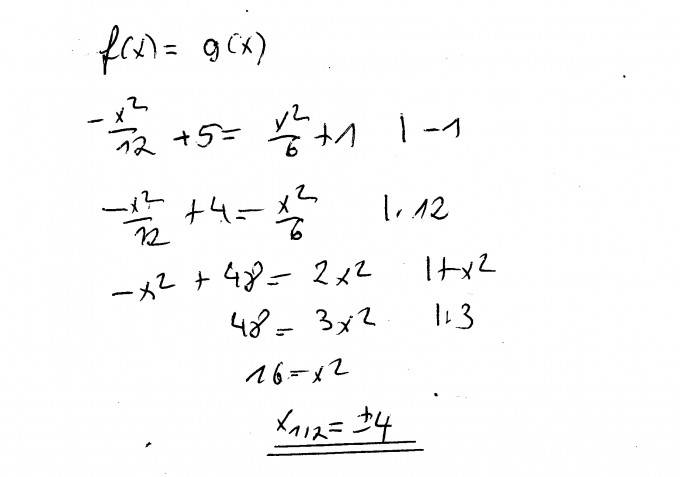 f(x) = g(x)
-x²/12 + 5 = x²/6 + 1 | -1
-x²/12 + 4 = x²/6 | · 12
-x² + 48 = 2x² | +x²
48 = 3x² | :3
16 = x²
x₁,₂ = ±4